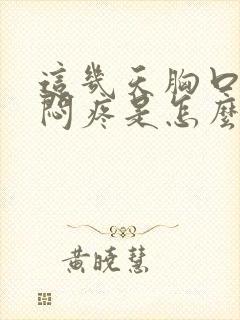 這幾天胸口
悶疼是怎麼
黃曉慧